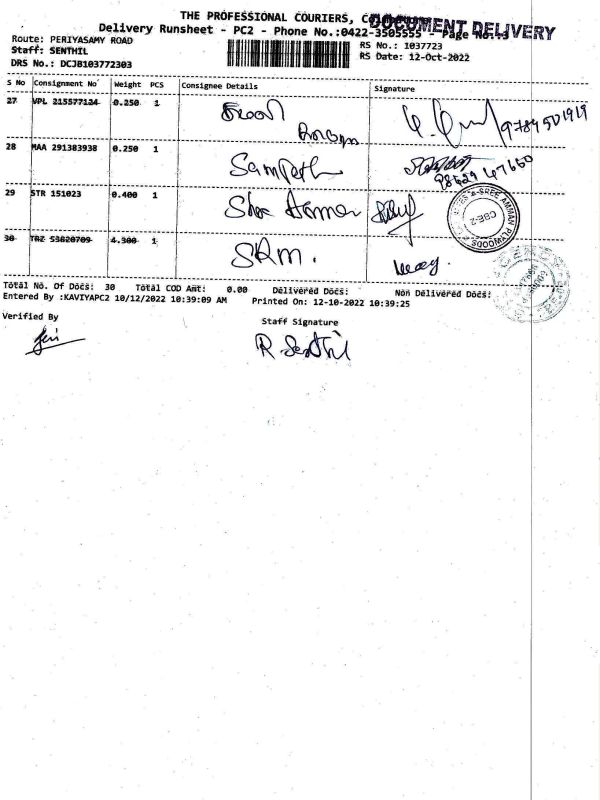 THE PROFESSIONAL COURIERS,
DOCUMENT DELIVERY
Delivery Runsheet - PC2 - Phone No.:0422-3505555 - Page No.:3
Route: PERIYASAMY ROAD
RS No.: 1037723
Staff: SENTHIL
RS Date: 12-Oct-2022
DRS No.: DCJB103772303
S No Consignment No Weight PCS Consignee Details Signature
27 VPL 215577124 0.250 1
9789501919
28 MAA 291383938 0.250 1 Sampath
98629 47660
29 STR 151023 0.400 1 Shree Ammar
SREE AMMAN PLYWOODS
CBE-2
30 TRZ 53820709 4.300 1 SRM.
Total No. Of Docs: 30 Total COD Amt: 0.00 Delivered Docs: Non Delivered Docs:
Entered By :KAVIYAPC2 10/12/2022 10:39:09 AM Printed On: 12-10-2022 10:39:25
Verified By
Staff Signature
R. Senthil